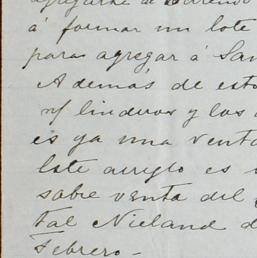 agregarse de
á formar un lote
para agregar á San
Además de esto
y linderos y los
es ya una venta
Este arreglo es
sobre venta del
tal Nieland d
Febrero -